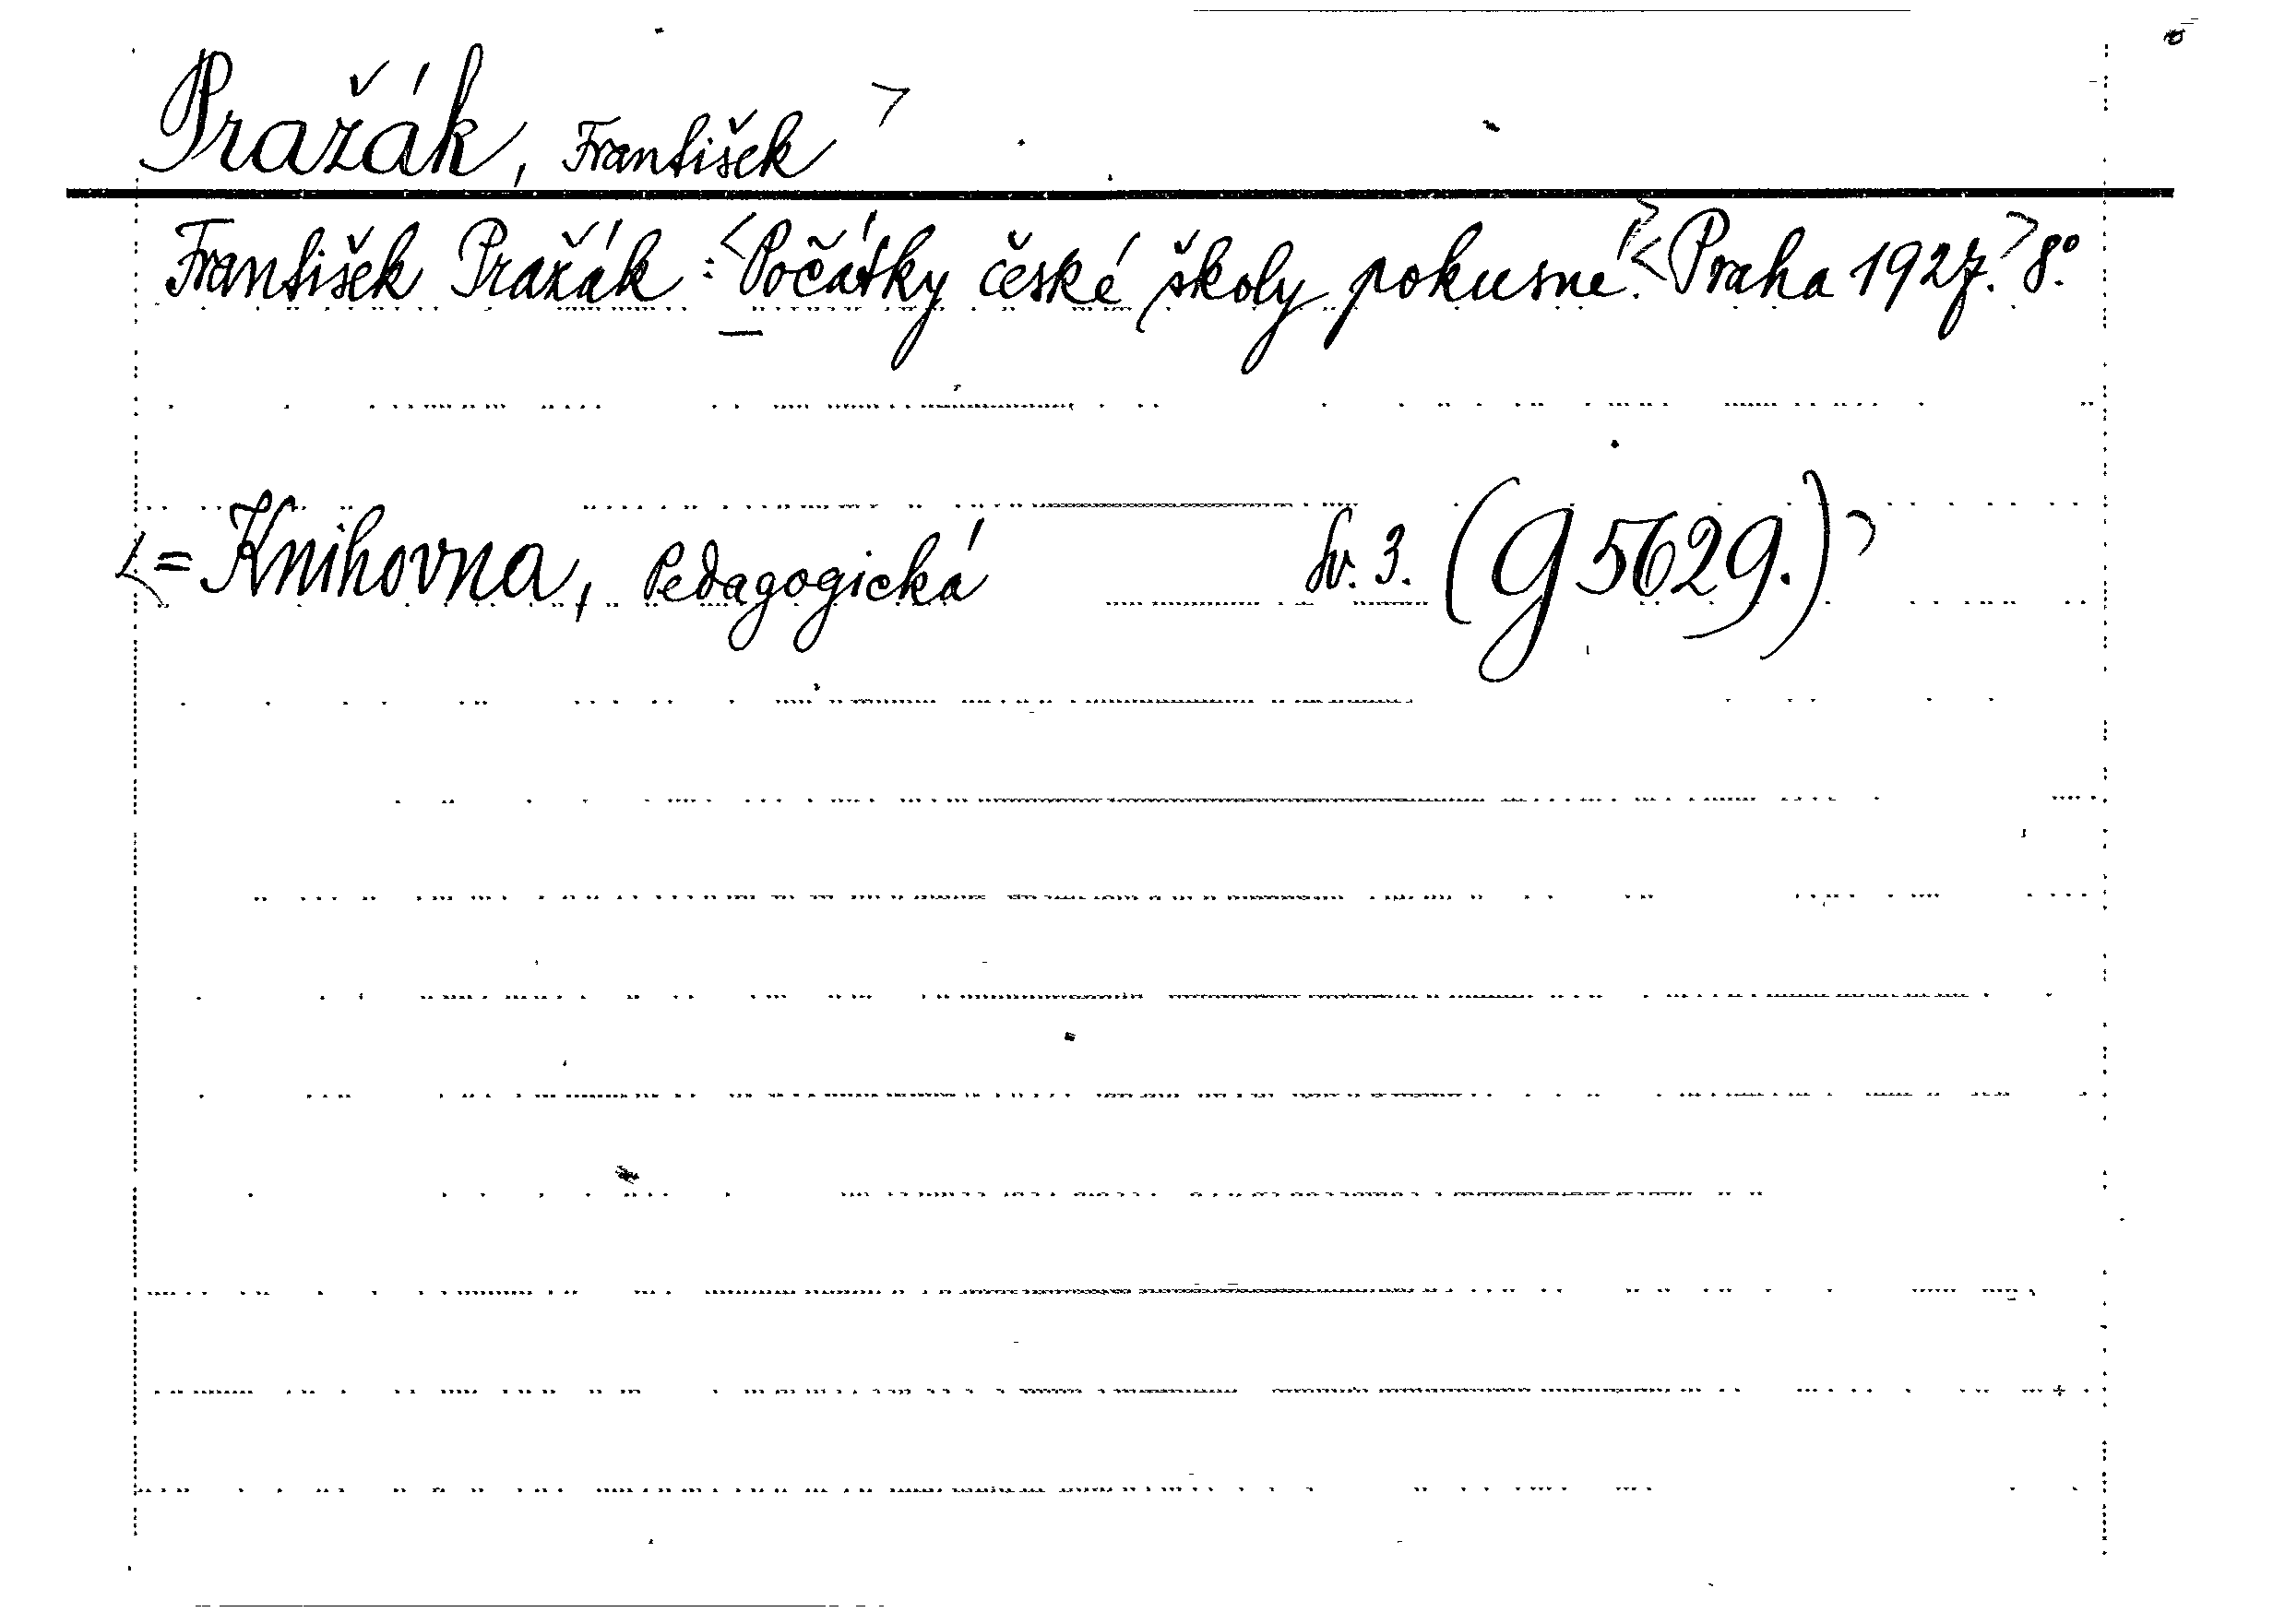 Pražák, František >
František Pražák: <Počátky české školy pokusné.> <Praha 1927.> 8°.
<= Knihovna, Pedagogická Sv. 3. (g 5629.)>